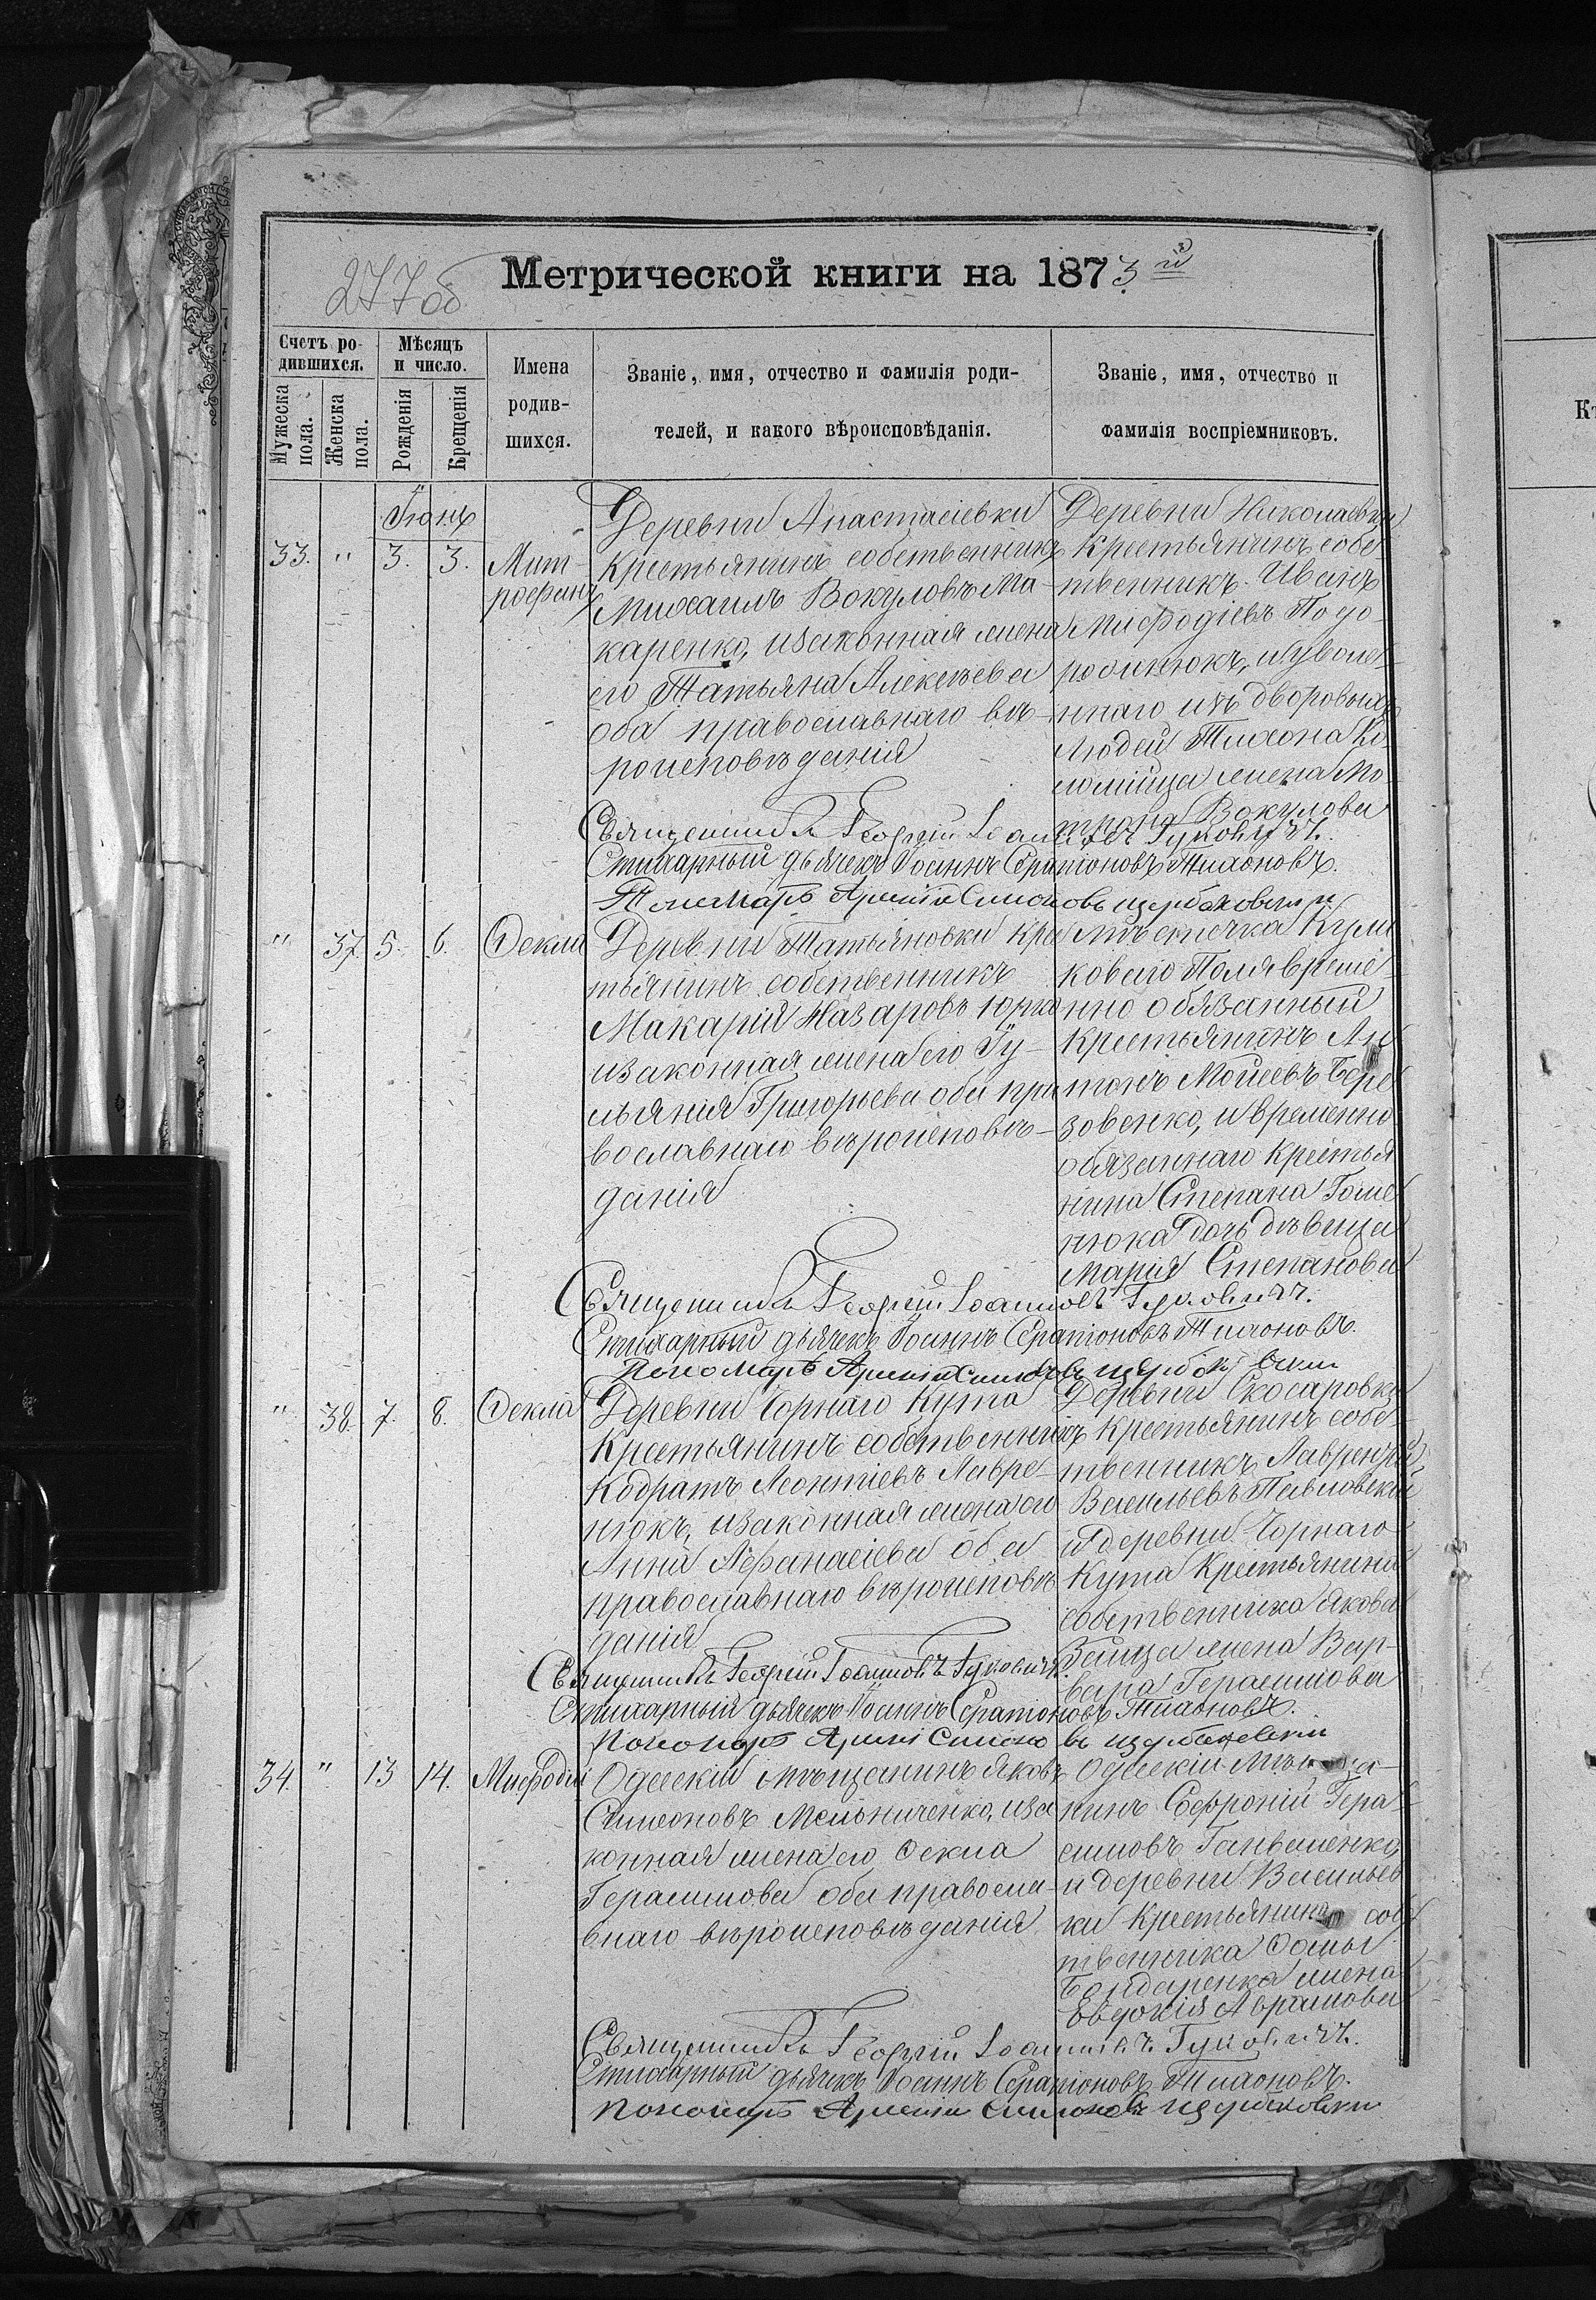 277об
Метрической книги на 1873й
Счетъ ро-
дившихся.
Мужеска
пола.
Женска
пола.
Мѣсяцъ
и число.
Рожденія
Крещенія
Имена
родив-
шихся.
Званіе, имя, отчество и фамилія роди-
телей, и какого вѣроисповѣданія.
Званіе, имя, отчество и
фамилія воспріемниковъ.
Іюнь
33. " 3. 3.
Мит-
рофанъ
Деревни Анастасіевки
Крестьянинъ собственникъ
Михаилъ Вокуловъ Ма-
каренко, и законная жена
его Татьяна Алексѣева
оба православнаго вѣ-
роисповѣданія
Деревни Николаевки
Крестьянинъ собс
твенникъ Иванъ
Мифодіевъ
и уволен-
ннаго изъ дворовыхъ
людей Тихона Ко-
ломійца жена Мо-
трона Вокулова
Священникъ Георгій Іоанновъ Гуковичъ.
Стихарный дьячекъ Іоаннъ Серапіоновъ Тихоновъ.
Пономарь Арсеній Симоновъ Щербаковскій
" 37. 5. 6. Ѳекла
Деревни Татьяновки крес
тьянинъ собственникъ
Макарій Назаровъ Юрко
и законная жена его Іу-
льянія Григорьева оба пра
вославнаго вѣроисповѣ-
данія
Мѣстечка Кули
коваго Поля време-
нно обязанный
Крестьянинъ Ан
тонъ Моисеевъ Бере
зовенко, и временно
обязаннаго Крестья
нина Степана Гоме
нюка дочь дѣвица
Марія Степанова
Священникъ Георгій Іоанновъ Гуковичъ.
Стихарный дьячекъ Іоаннъ Серапіоновъ Тихоновъ.
Пономарь Арсеній Симоновъ Щербаковскій
" 38. 7. 8. Ѳекла
Деревни Чорнаго Кута
Крестьянинъ собственникъ
Кодратъ Леонтіевъ Лавре-
нюкъ, и законная жена его
Анна Афанасіева оба
православнаго вѣроисповѣ
данія
Деревни Скосаровки
Крестьянинъ собс-
твенникъ Лаврентій
Васильевъ Павловскій
и деревни Чорнаго
Кута Крестьянина
собственника Якова
Зайца жена Вар-
вара Герасимова
Священникъ Георгій Іоанновъ Гуковичъ.
Стихарный дьячекъ Іоаннъ Серапіоновъ Тихоновъ.
Пономарь Арсеній Симоновъ Щербаковскій
34. " 13 14. Мифодій
Одесскій мѣщанинъ Яковъ
Симеоновъ Мельниченко, и за
конная жена его Ѳекла
Герасимова оба правосла-
внаго вѣроисповѣданія
Одесскій мѣща-
нинъ Софроній Гера-
симовъ
и деревни Васильев
ки Крестьянина соб
твенника Ѳомы
Бондаренка жена
Евдокія Аврамова
Священникъ Георгій Іоанновъ Гуковичъ.
Стихарный дьячекъ Іоаннъ Серапіоновъ Тихоновъ.
Пономарь Арсеній Симоновъ Щербаковскій